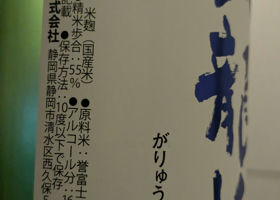 龍
がりゅう
米麹(国産米)●原料米:誉富士
精米歩合:55%●アルコール分:16
記載●保存方法:10度以下で保存
式会社 静岡県静岡市清水区西久保5